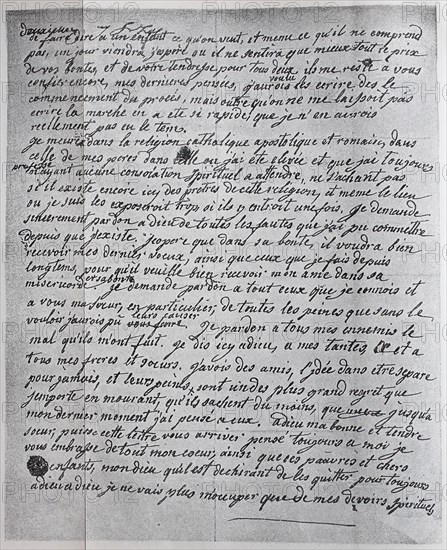 de faire dire à un enfant ce qu'on veut, et meme ce qu'il ne comprend
pas, un jour viendra j'espere ou il ne sentira que mieux tout le prix
de vos bontés, et de votre tendresse pour tous deux. il me reste a vous
confier encore, mes dernieres pensées, j'aurois voulu les ecrire dès le
commencement du procès, mais outre qu'on ne me laissoit pas
ecrire la marche en a eté si rapide, que je n'en aurois
reellement pas eu le tems.
je meurs dans la religion catholique apostolique et romaine, dans
celle de mes peres dans celle ou j'ai été elevée et que j'ai toujours
professée n'ayant aucune consolation spirituel a attendre, ne sachant pas
s'il existe encore icy des prêtres de cette religion, et meme le lieu
ou je suis les exposeroit trop si ils y entroit une fois. je demande
sincerement pardon a dieu de toutes les fautes que j'ai pu commettre
depuis que j'existe. j'espere que dans sa bonté, il voudra bien
recevoir mes dernier voeux, ainsi que ceux que je fais depuis
longtems, pour qu'il veuille bien recevoir mon ame dans sa
misericorde et sa bonté. je demande pardon a tout ceux que je connois et
a vous ma soeur, en particulier, de toutes les peines que sans le
vouloir j'aurois pu vous causer. je pardon a tous mes ennemis le
mal qu'ils m'ont fait. je dis icy adieu, a mes tantes et a
tous mes freres et soeurs. j'avois des amis, l'idée d'en etre separé
pour jamais, et leurs peines, sont un des plus grand regret que
j'emporte en mourant, qu'ils sachent du moins, que jusqu'a
mon dernier moment j'ai pensé a eux. adieu ma bonne et tendre
soeur, puisse cette lettre vous arriver. pensé toujours a moi je
vous embrasse de tout mon coeur, ainsi que ces pauvres et chers
enfants, mon dieu qu'il est dechirant de les quitter pour toujours
adieu adieu je ne vais plus m'occuper que de mes devoirs spirituels